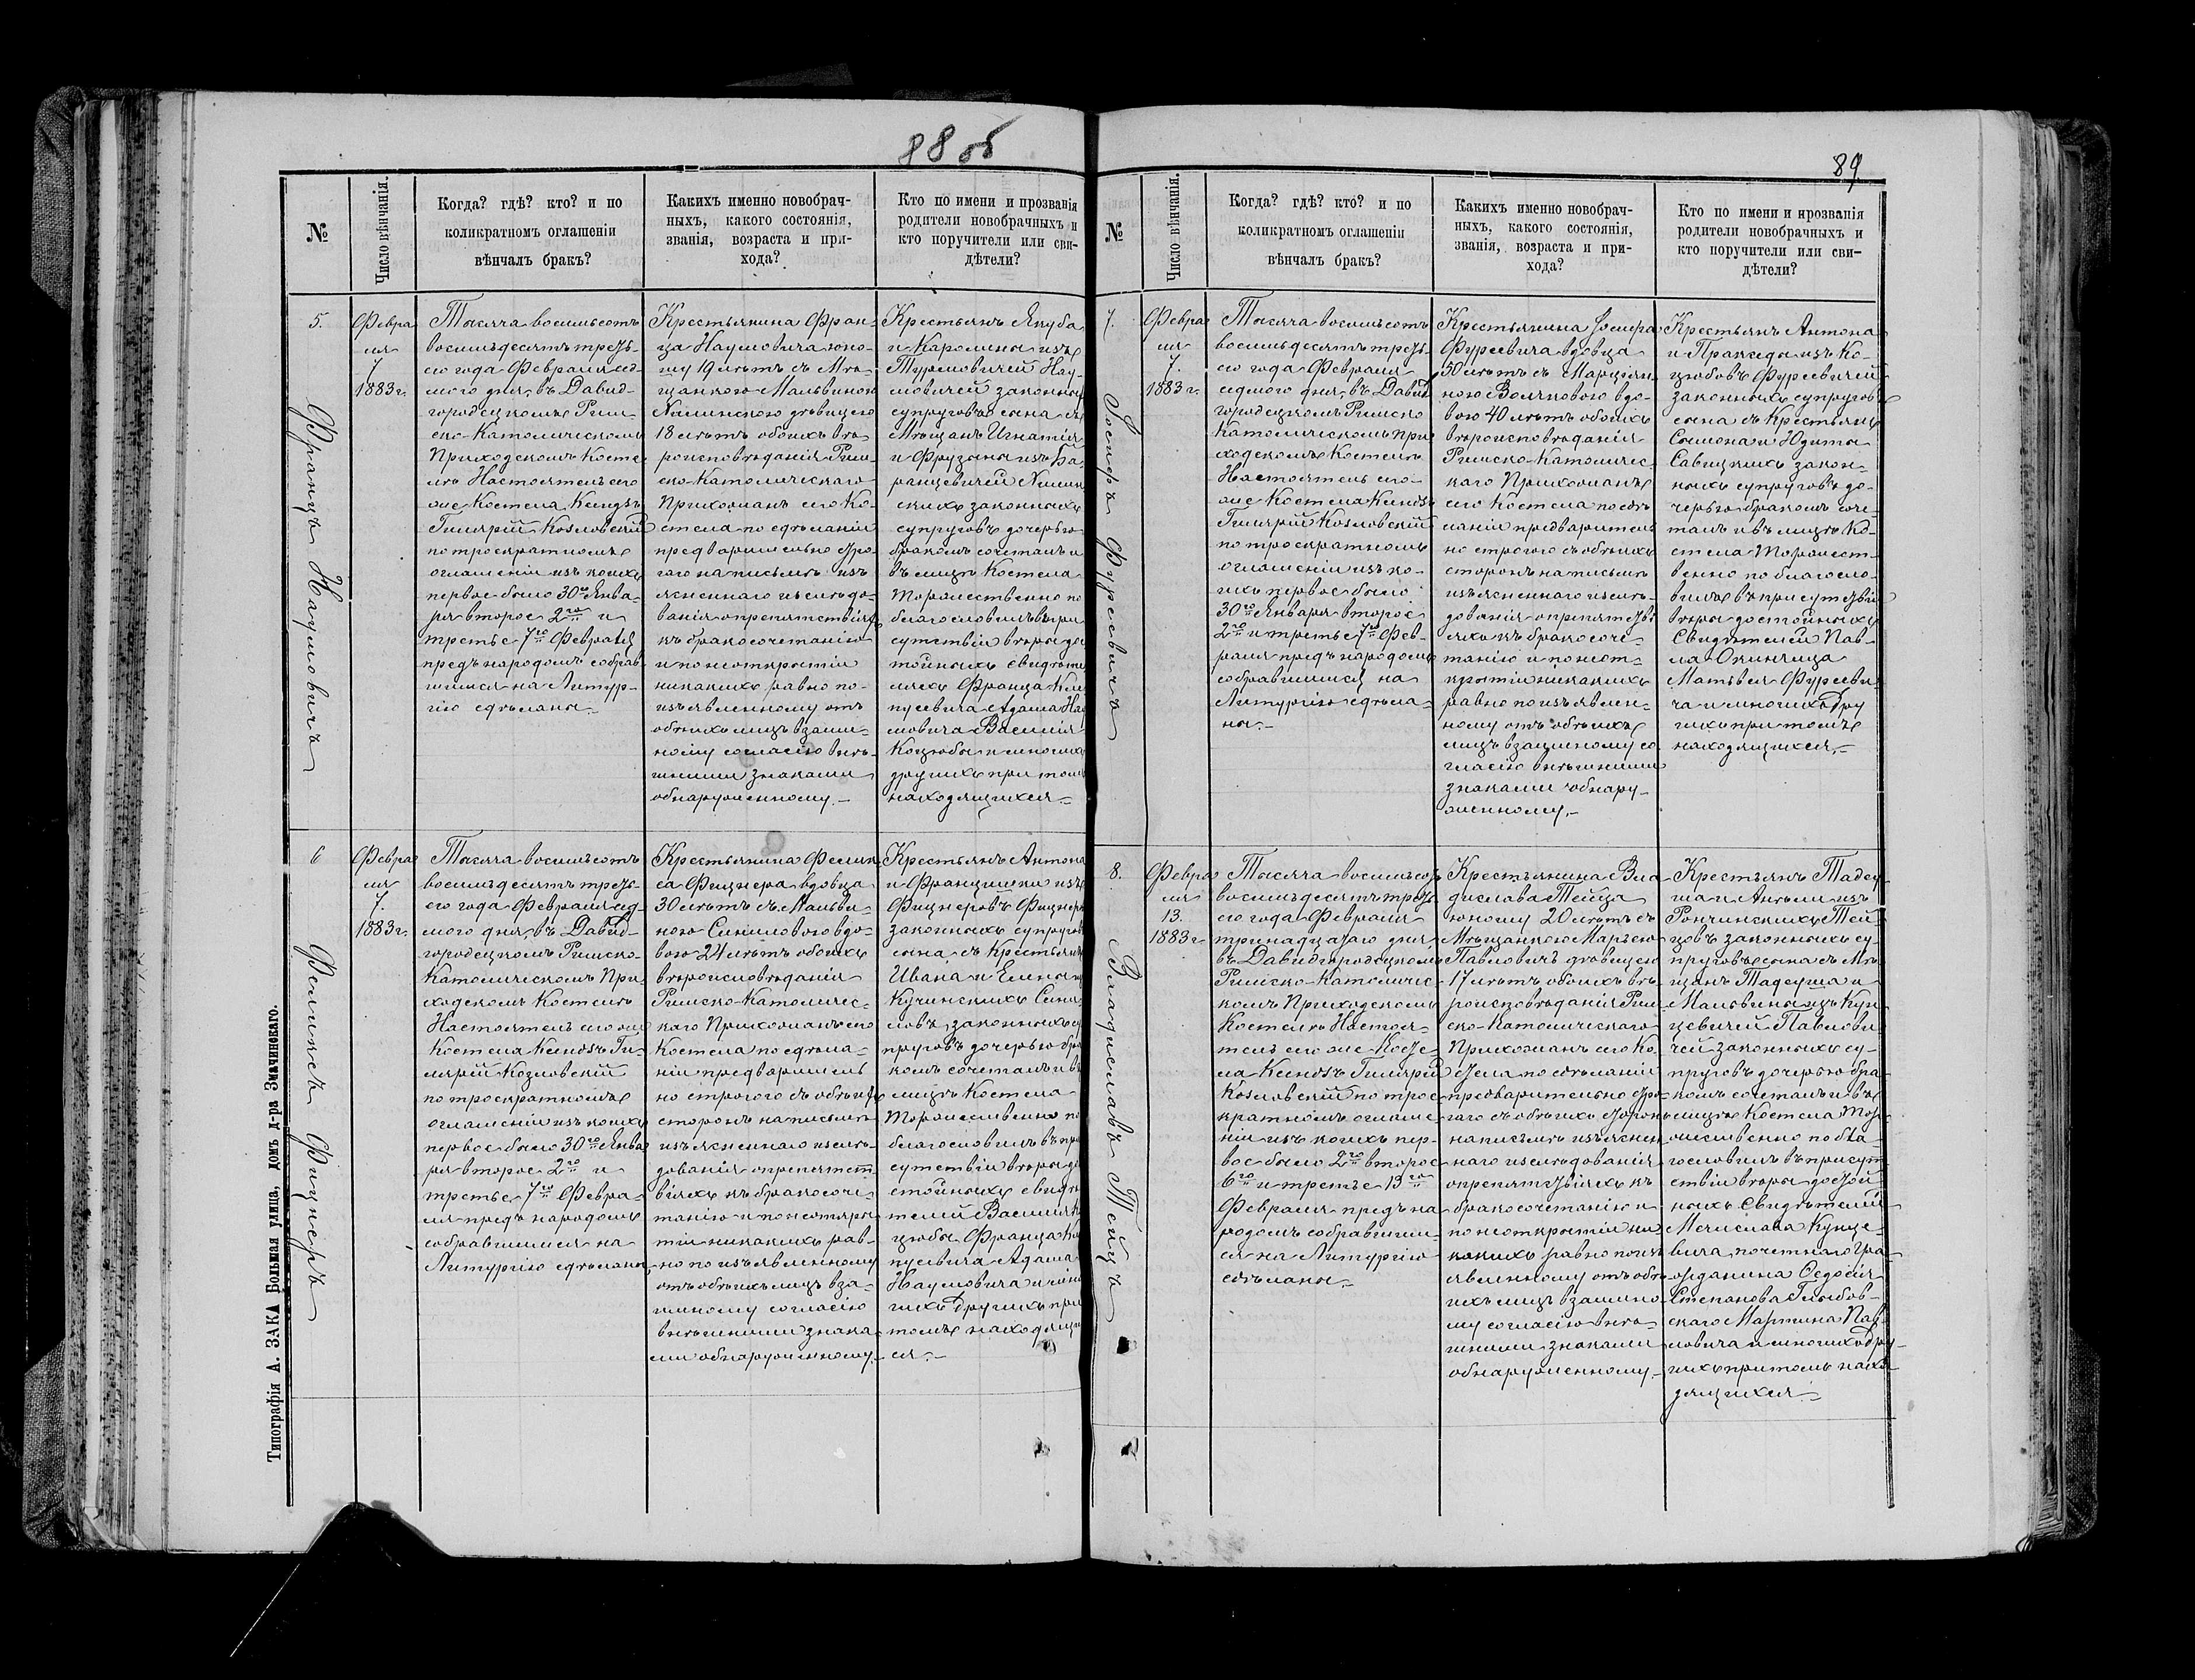 88 об
№
Число вѣнчанія.
Когда? гдѣ? кто? и по
коликратномъ оглашеніи
вѣнчалъ бракъ?
Какихъ именно новобрач-
ныхъ, какого состоянія,
званія, возраста и при-
хода?
Кто по имени и прозванія
родители новобрачныхъ и
кто поручители или сви-
дѣтели?
5.
Францъ Наумовичъ
Февра
ля
7.
1883 г.
Тысяча восемьсотъ
восемьдесятъ треть-
его года Февраля сед-
мого дня, въ Давид-
городецкомъ Рим-
ско-Католическомъ
Приходскомъ Косте-
лѣ Настоятель сего
же Костела Ксендзъ
Гилярій Козловскій
по троекратномъ
оглашеніи изъ коихъ
первое было 30го Янва-
ря второе 2го и
третье 7го Февраля
предъ народомъ собрав
шимся на Литур-
гію сдѣланы.-
Крестьянина Фран-
ца Наумовича юно-
шу 19 лѣтъ съ Мѣ-
щанкою Мальвиною
дѣвицею
18 лѣтъ обоихъ вѣ-
роисповѣданія Рим-
ско-Католическаго
Прихожанъ сего Ко-
стела по сдѣланіи
предварительно стро-
гаго на письмѣ изъ
ясненнаго изслѣдо-
ванія о препятствіяхъ
къ бракосочетанію
и по неоткрытіи
никакихъ равно по-
изъявленному отъ
обоихъ лицъ взаим-
ному согласію внѣ-
шними знаками
обнаруженному.-
Крестьянъ Якуба
и Каролины изъ
Турловичей Нау-
мовичей законныхъ
супруговъ сына съ
Мѣщанъ Игнатія
и Фрузыны изъ Ба-
ранцевичей
скихъ законныхъ
супруговъ дочерью
бракомъ сочеталъ и
въ лицѣ Костела
торжественно по
благословилъ въ при
сутствіи вѣры дос
тойныхъ свидѣте
ляхъ Франца
Адама Нау
мовича Василія
Коцюбы и многихъ
другихъ при томъ
находящихся.-
6
Феликсъ Фицнеръ
Февра
ля
7.
1883 г.
Тысяча восемьсотъ
восемьдесятъ треть-
его года Февраля сед-
мого дня, въ Давид-
городецкомъ Римско-
Католическомъ При-
ходскомъ Костелѣ
Настоятель сего же
Костела Ксендзъ Ги-
лярій Козловскій
по троекратномъ
оглашеніи изъ коихъ
первое было 30го Янва
ря второе 2го и
третье 7го Февра-
ля предъ народомъ
собравшимся на
Литургію сдѣланы.
Крестьянина Фелик
са Фицнера вдовца
30 лѣтъ съ Мальви-
ною вдо-
вою 24 лѣтъ обоихъ
вѣроисповѣданія
Римско-Католичес-
каго Прихожанъ сего
Костела по сдѣла-
ніи предваритель
но строгого съ обѣихъ
сторонъ на письмѣ
изъясненнаго изслѣ-
дованія о препятст
віяхъ къ бракосоче-
танію и по неоткры
тіи никакихъ рав-
но по изъявленному
отъ обоихъ лицъ вза-
имному согласію
внѣшними знака-
ми обнаруженному.
Крестьянъ Антона
и Францишки изъ
Фицнеровъ Фицнер
законныхъ супругов
сына, съ Крестьянъ
Ивана и Елены изъ
Кучинскихъ
законныхъ су
пруговъ дочерью бра
комъ сочеталъ и въ
лицѣ Костела
торжественно по
благословилъ въ при
сутствіи вѣры до
стойныхъ свидѣ
телей Василія Ко
цюбы Франца
Адама
Наумовича и мно
гихъ другихъ при
томъ находящих
ся.-
Типографія А. ЗАКА Большая улица, домъ д-ра Значинскаго.
89.
№
Число вѣнчанія.
Когда? гдѣ? кто? и по
коликратномъ оглашеніи
вѣнчалъ бракъ?
Какихъ именно новобрач-
ныхъ, какого состоянія,
званія, возраста и при-
хода?
Кто по имени и прозванія
родители новобрачныхъ и
кто поручители или сви-
дѣтели?
7.
Іосифъ Фурсевичъ
Февра
ля
7.
1883 г.
Тысяча восемьсотъ
восемьдесятъ треть-
его года Февраля
седмого дня, въ Давид
городецкомъ Римско
Католическомъ При-
ходскомъ Костелѣ
Настоятель сего-
же Костела Ксендзъ
Гилярій Козловскій
по троекратномъ
оглашеніи изъ ко-
ихъ первое было
30го Января второе
2го и третье 7го Фев-
раля предъ народомъ
собравшимся на
Литургію сдѣла-
ны.-
Крестьянина Іосифа
Фурсевича вдовца
50 лѣтъ съ Марціан-
ною вдо-
вою 40 лѣтъ обоихъ
вѣроисповѣданія
Римско-Католичес-
каго Прихожанъ
сего Костела по сдѣ
ланіи предваритель
но строгого съ обѣихъ
сторонъ на письмѣ
изъясненнаго изслѣ-
дованія о препятстві
яхъ къ бракосоче-
танію и по неот-
крытіи никакихъ
равно по изъявлен-
ному отъ обоихъ
лицъ взаимному со
гласію внѣшними
знаками обнару-
женному.-
Крестьянъ Антона
и Пракседы изъ Ко-
цюбовъ Фурсевичей
законныхъ супругов
сына съ Крестьянъ
Симона и Юдиты
Савицкихъ закон-
ныхъ супруговъ до-
черью бракомъ соче-
талъ и въ лицѣ Ко-
стела Торжест-
венно поблагосло-
вилъ въ присутствіи
вѣры достойныхъ
Свидѣтелей Пав-
ла
Матвея Фурсеви
ча и многихъ дру
гихъ при томъ
находящихся.-
8.
Владиславъ Тейцъ
Февра
ля
13.
1883 г.
Тысяча восемьсотъ
восемьдесятъ треть
его года Февраля
тринадцатаго дня
въ Давидгородецкомъ
Римско-Католичес-
комъ Приходскомъ
Костелѣ Настоя-
тель сего же Косте-
ла Ксендзъ Гилярій
Козловскій по трое-
кратномъ оглаше-
ніи изъ коихъ пер-
вое было 2го второе
6го и третье 13го
Февраля предъ на
родомъ собравшим-
ся на Литургію
сдѣланы.-
Крестьянина Вла
дислава Тейца
юношу 20 лѣтъ съ
Мѣщанкою Маріею
Павловичъ дѣвицею
17 лѣтъ обоихъ вѣ-
роисповѣданія Рим-
ско-Католическаго
Прихожанъ сего Ко
стела по сдѣланіи
предварительно стро-
гаго съ обѣихъ сторонъ
на письмѣ изъяснен
наго изслѣдованія
о препятствіяхъ къ
бракосочетанію и
по неоткрытіи ни
какихъ равно по изъ
явленному отъ обо
ихъ лицъ взаимно
му согласію внѣ-
шними знаками
обнаруженному.-
Крестьянъ Тадеу
ша и Анели изъ
Рончинскихъ Тей
цовъ законныхъ су-
пруговъ сына съ Мѣ-
щанъ Тадеуша и
Мальвины изъ Кун
цевичей Павлови
чей законныхъ су-
пруговъ дочерью бра
комъ сочеталъ и въ
лицѣ Костела Тор
жественно побла-
гословилъ въ присут
ствіи вѣры достой
ныхъ Свидѣтелей
Мечислава Кунце-
вича, почетнаго Гра
жданина Ѳедосія
Степанова
скаго Мартина Пав
ловича и многихъ дру-
гихъ при томъ нахо
дящихся.-